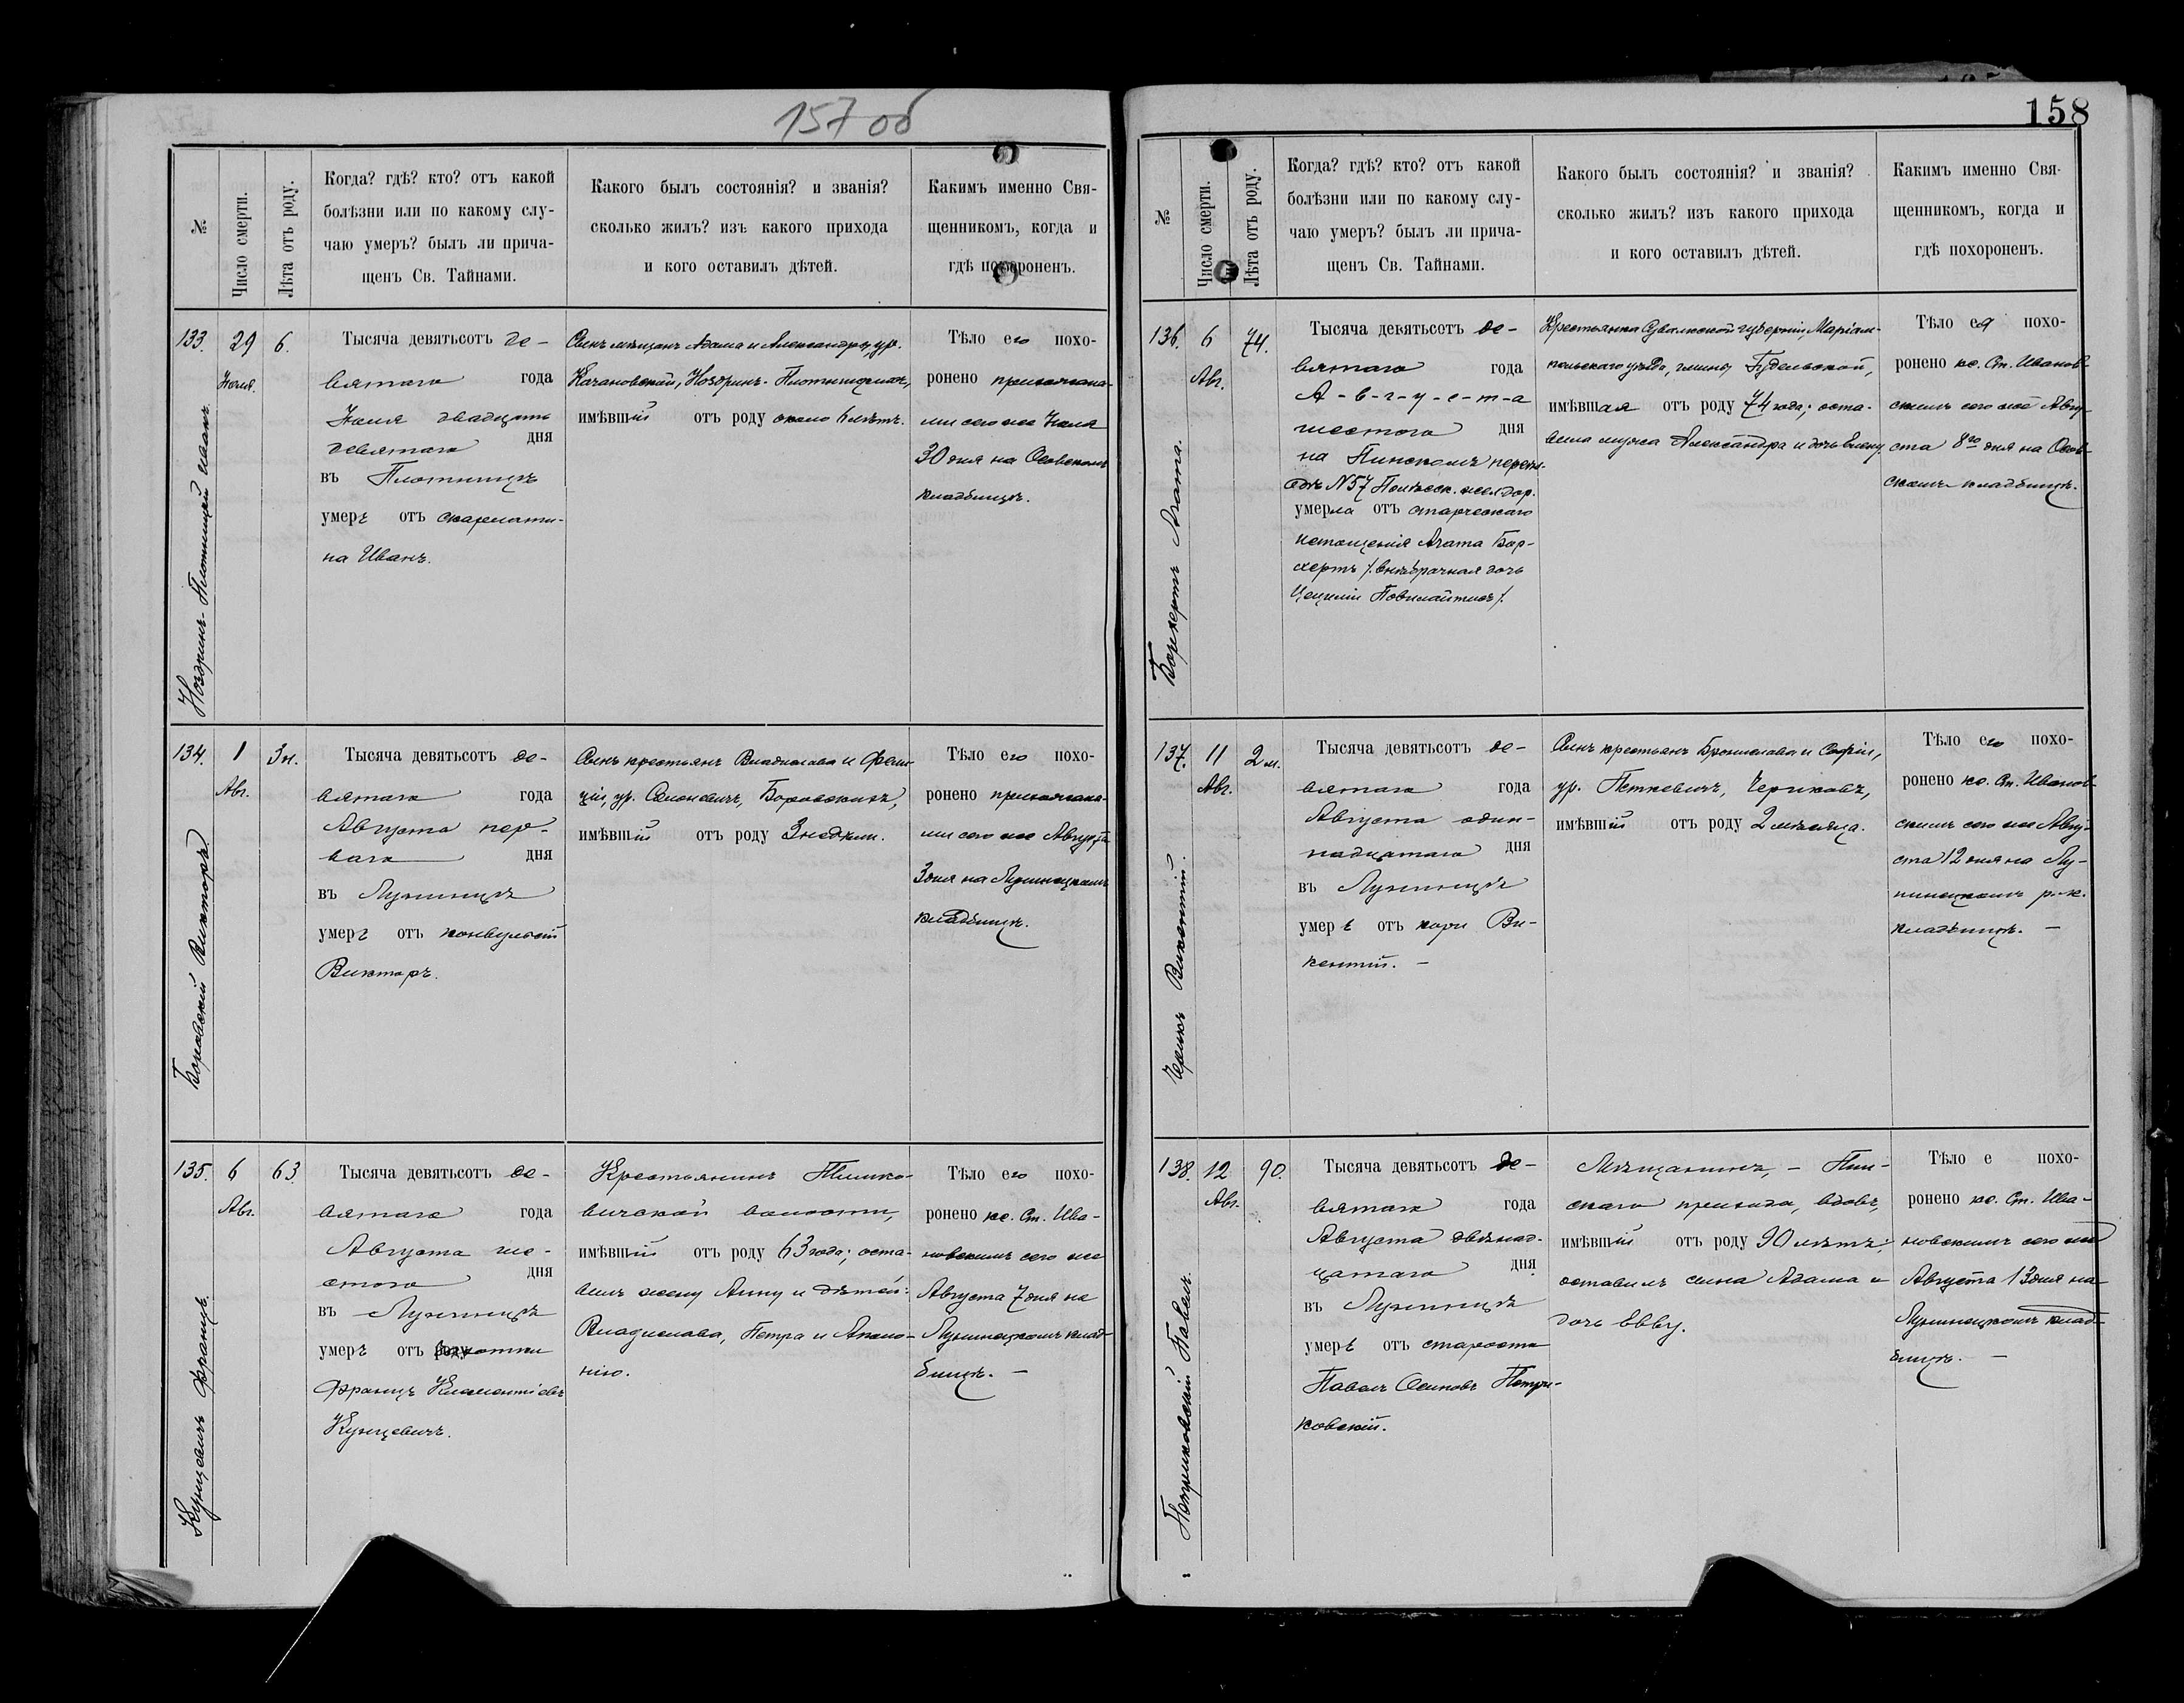 157 об
№
Число смерти.
Лѣта отъ роду.
Когда? гдѣ? кто? отъ какой
болѣзни или по какому слу-
чаю умеръ? былъ ли прича-
щенъ Св. Тайнами.
Какого былъ состоянія? и званія?
сколько жилъ? изъ какого прихода
и кого оставилъ дѣтей.
Какимъ именно Свя-
щенникомъ, когда и
гдѣ похороненъ.
133.
29
Іюля.
6.
Ноздринъ-Плотницкій Иванъ.
Тысяча девятьсотъ де-
вятаго года
Іюля двадцать
девятаго дня
въ Плотницѣ
умеръ отъ скарлати-
на Иванъ.
Сынъ мѣщанъ Адама и Александры, ур.
Качановской, Ноздринъ-Плотницкихъ,
имѣвшій отъ роду около 6 лѣтъ.
Тѣло его похо-
ронено прихожана-
ми сего же Іюля
30 дня на Осовскомъ
кладбищѣ.
134.
1
Авг.
3 н.
Боровскій Викторъ.
Тысяча девятьсотъ де-
вятаго года
Августа пер-
ваго дня
въ Лунинцѣ
умеръ отъ конвульсій
Викторъ.
Сынъ крестьянъ Владислава и Фели-
ціи, ур. Боровскихъ,
имѣвшій отъ роду 3 недѣли.
Тѣло его похо-
ронено прихожана-
ми сего же Августа
3 дня на Лунинецкомъ
кладбищѣ.
135.
6
Авг.
63
Кунцевичъ Францъ.
Тысяча девятьсотъ де-
вятаго года
Августа ше-
стого дня
въ Лунинцѣ
умеръ отъ чахотки
Францъ Климентіевъ
Кунцевичъ.
Крестьянинъ
вичской волости,
имѣвшій отъ роду 63 года; оста-
вилъ жену Анну и дѣтей:
Владислава, Петра и Аполо-
нію.
Тѣло его похо-
ронено кс. Ст. Ива-
новскимъ сего же
Августа 7 дня на
Лунинецкомъ клад-
бищѣ. —
158
№
Число смерти.
Лѣта отъ роду.
Когда? гдѣ? кто? отъ какой
болѣзни или по какому слу-
чаю умеръ? былъ ли прича-
щенъ Св. Тайнами.
Какого былъ состоянія? и званія?
сколько жилъ? изъ какого прихода
и кого оставилъ дѣтей.
Какимъ именно Свя-
щенникомъ, когда и
гдѣ похороненъ.
136.
6
Авг.
74.
Борхертъ Агата.
Тысяча девятьсотъ де-
вятаго года
А-в-г-у-с-т-а
шестого дня
на Пинскомъ переѣз-
здѣ N57 Полѣсск. жел. дор.
умерла отъ старческаго
истощенія Агата Бор-
хертъ /. внѣбрачная дочь
Цециліи Повилайтисъ /.
Крестьянка Сувалкской губерніи, Маріам-
польскаго уѣзда, гмины Гудельской,
имѣвшая отъ роду 74 года; оста-
вила мужа Александра и дочь Елену.
Тѣло ея похо-
ронено кс. Ст. Иванов-
скимъ сего же Авгу-
ста 8го дня на Осов-
скомъ кладбищѣ.
137.
11
Авг.
2 м.
Черикъ Викентій.
Тысяча девятьсотъ де-
вятаго года
Августа один-
надцатаго дня
въ Лунинцѣ
умеръ отъ кори Ви-
кентій. —
Сынъ крестьянъ Бронислава и Софіи,
ур. Петкевичъ, Чериковъ,
имѣвшій отъ роду 2 мѣсяца.
Тѣло его похо-
ронено кс. Ст. Иванов-
скимъ сего же Авгу-
ста 12 дня на Лу-
нинецкомъ р.-к.
кладбищѣ. —
138.
12
Авг.
90.
Петриковскій Павелъ.
Тысяча девятьсотъ де-
вятаго года
Августа двѣнад-
цатаго дня
въ Лунинцѣ
умеръ отъ старости
Павелъ Осиповъ Петри-
ковскій.
Мѣщанинъ, — Пин-
скаго прихода, вдовъ,
имѣвшій отъ роду 90 лѣтъ;
оставилъ сына Адама и
дочь Евву.
Тѣло е похо-
ронено кс. Ст. Ива-
новскимъ сего же
Августа 13 дня на
Лунинецкомъ клад-
бищѣ. —